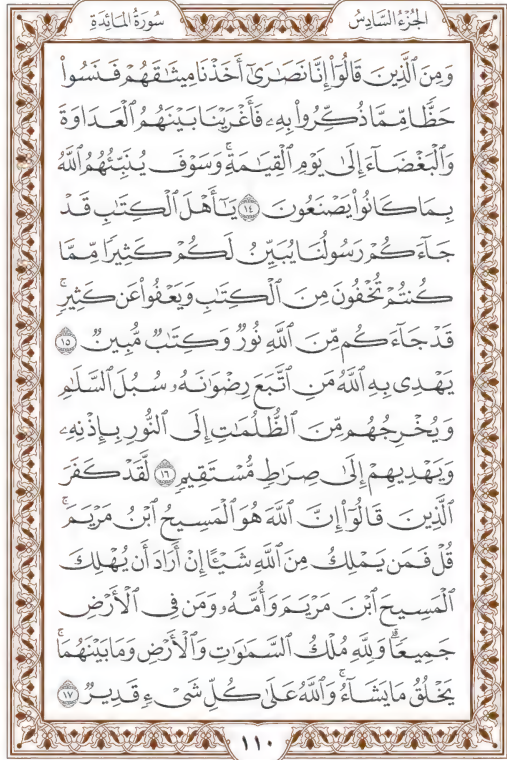 سُورَةُ المَائدَةِ
الجُزءُ السَّادِسُ
وَمِنَ ٱلَّذِينَ قَالُوٓا۟ إِنَّا نَصَـٰرَىٰٓ أَخَذْنَا مِيثَـٰقَهُمْ فَنَسُوا۟
حَظًّا مِّمَّا ذُكِّرُوا۟ بِهِۦ فَأَغْرَيْنَا بَيْنَهُمُ ٱلْعَدَاوَةَ
وَٱلْبَغْضَآءَ إِلَىٰ يَوْمِ ٱلْقِيَـٰمَةِ ۚ وَسَوْفَ يُنَبِّئُهُمُ ٱللَّهُ
بِمَا كَانُوا۟ يَصْنَعُونَ ١٤ يَـٰٓأَهْلَ ٱلْكِتَـٰبِ قَدْ
جَآءَكُمْ رَسُولُنَا يُبَيِّنُ لَكُمْ كَثِيرًا مِّمَّا
كُنتُمْ تُخْفُونَ مِنَ ٱلْكِتَـٰبِ وَيَعْفُوا۟ عَن كَثِيرٍ ۚ
قَدْ جَآءَكُم مِّنَ ٱللَّهِ نُورٌ وَكِتَـٰبٌ مُّبِينٌ ١٥
يَهْدِى بِهِ ٱللَّهُ مَنِ ٱتَّبَعَ رِضْوَٰنَهُۥ سُبُلَ ٱلسَّلَـٰمِ
وَيُخْرِجُهُم مِّنَ ٱلظُّلُمَـٰتِ إِلَى ٱلنُّورِ بِإِذْنِهِۦ
وَيَهْدِيهِمْ إِلَىٰ صِرَٰطٍ مُّسْتَقِيمٍ ١٦ لَّقَدْ كَفَرَ
ٱلَّذِينَ قَالُوٓا۟ إِنَّ ٱللَّهَ هُوَ ٱلْمَسِيحُ ٱبْنُ مَرْيَمَ ۚ
قُلْ فَمَن يَمْلِكُ مِنَ ٱللَّهِ شَيْـًٔا إِنْ أَرَادَ أَن يُهْلِكَ
ٱلْمَسِيحَ ٱبْنَ مَرْيَمَ وَأُمَّهُۥ وَمَن فِى ٱلْأَرْضِ
جَمِيعًا ۗ وَلِلَّهِ مُلْكُ ٱلسَّمَـٰوَٰتِ وَٱلْأَرْضِ وَمَا بَيْنَهُمَا ۚ
يَخْلُقُ مَا يَشَآءُ ۚ وَٱللَّهُ عَلَىٰ كُلِّ شَىْءٍ قَدِيرٌ ١٧
١١٠